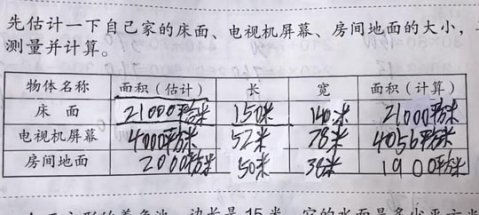 先估计一下自己家的床面、电视机屏幕、房间地面的大小，
测量并计算。
物体名称 面积（估计） 长 宽 面积（计算）
床 面 21000平方米 150米 140米 21000平方米
电视机屏幕 4000平方米 52米 78米 4056平方米
房间地面 2000平方米 50米 38米 1900平方米
边长是 15 米